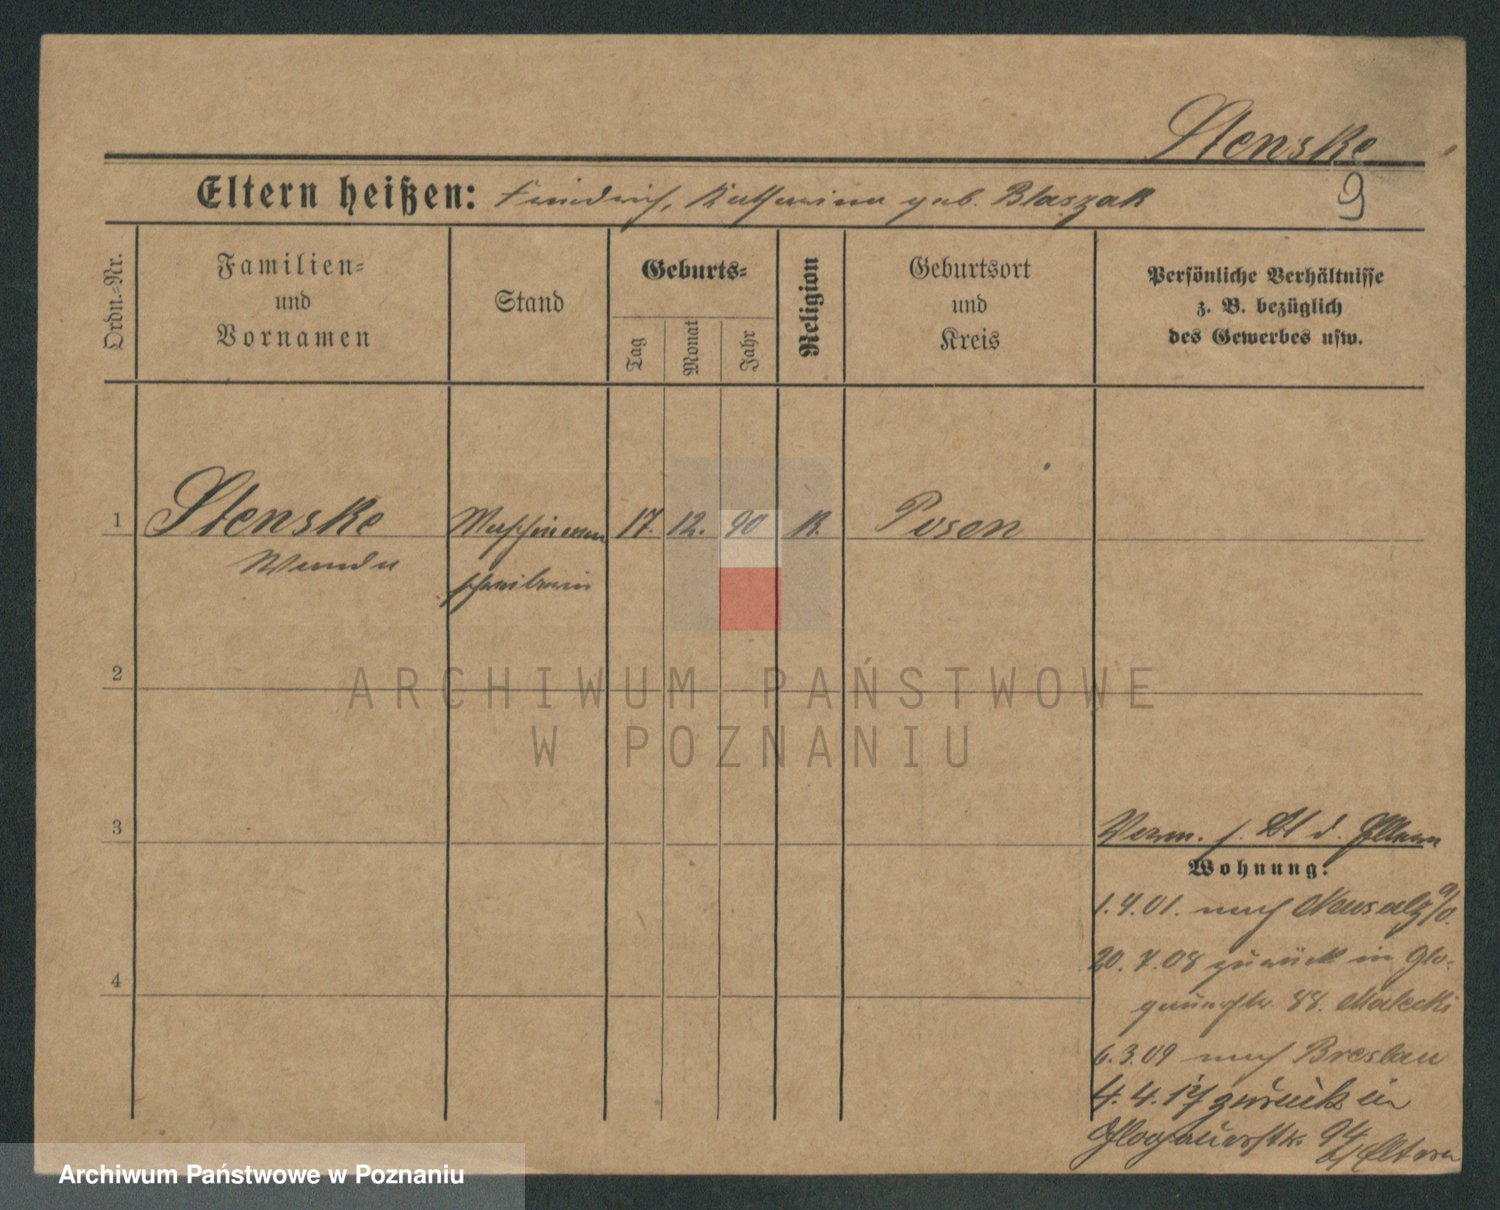 Stenske
9
Eltern heißen: Friedrich, Katharina geb. Blaszak
Ordn.=Nr.
Familien=
und
Vornamen
Stand
Geburts=
Tag
Monat
Jahr
Religion
Geburtsort
und
Kreis
Persönliche Verhältnisse
z. B. bezüglich
des Gewerbes usw.
1 Stenske Maschinen 17. 12. 90 K. Posen
Wanda schreiberin
2
ARCHIWUM PAŃSTWOWE
W POZNANIU
3
Verm. s. Bl d. Eltern
Wohnung:
1.4.01. nach Neusalz a/O.
4
20.7.08 zurück in Glo-
gauerstr. 88. Malecki
6.3.09 nach Breslau
4.4.17 zurück in
Glogauerstr. 94
b/ Eltern
Archiwum Państwowe w Poznaniu